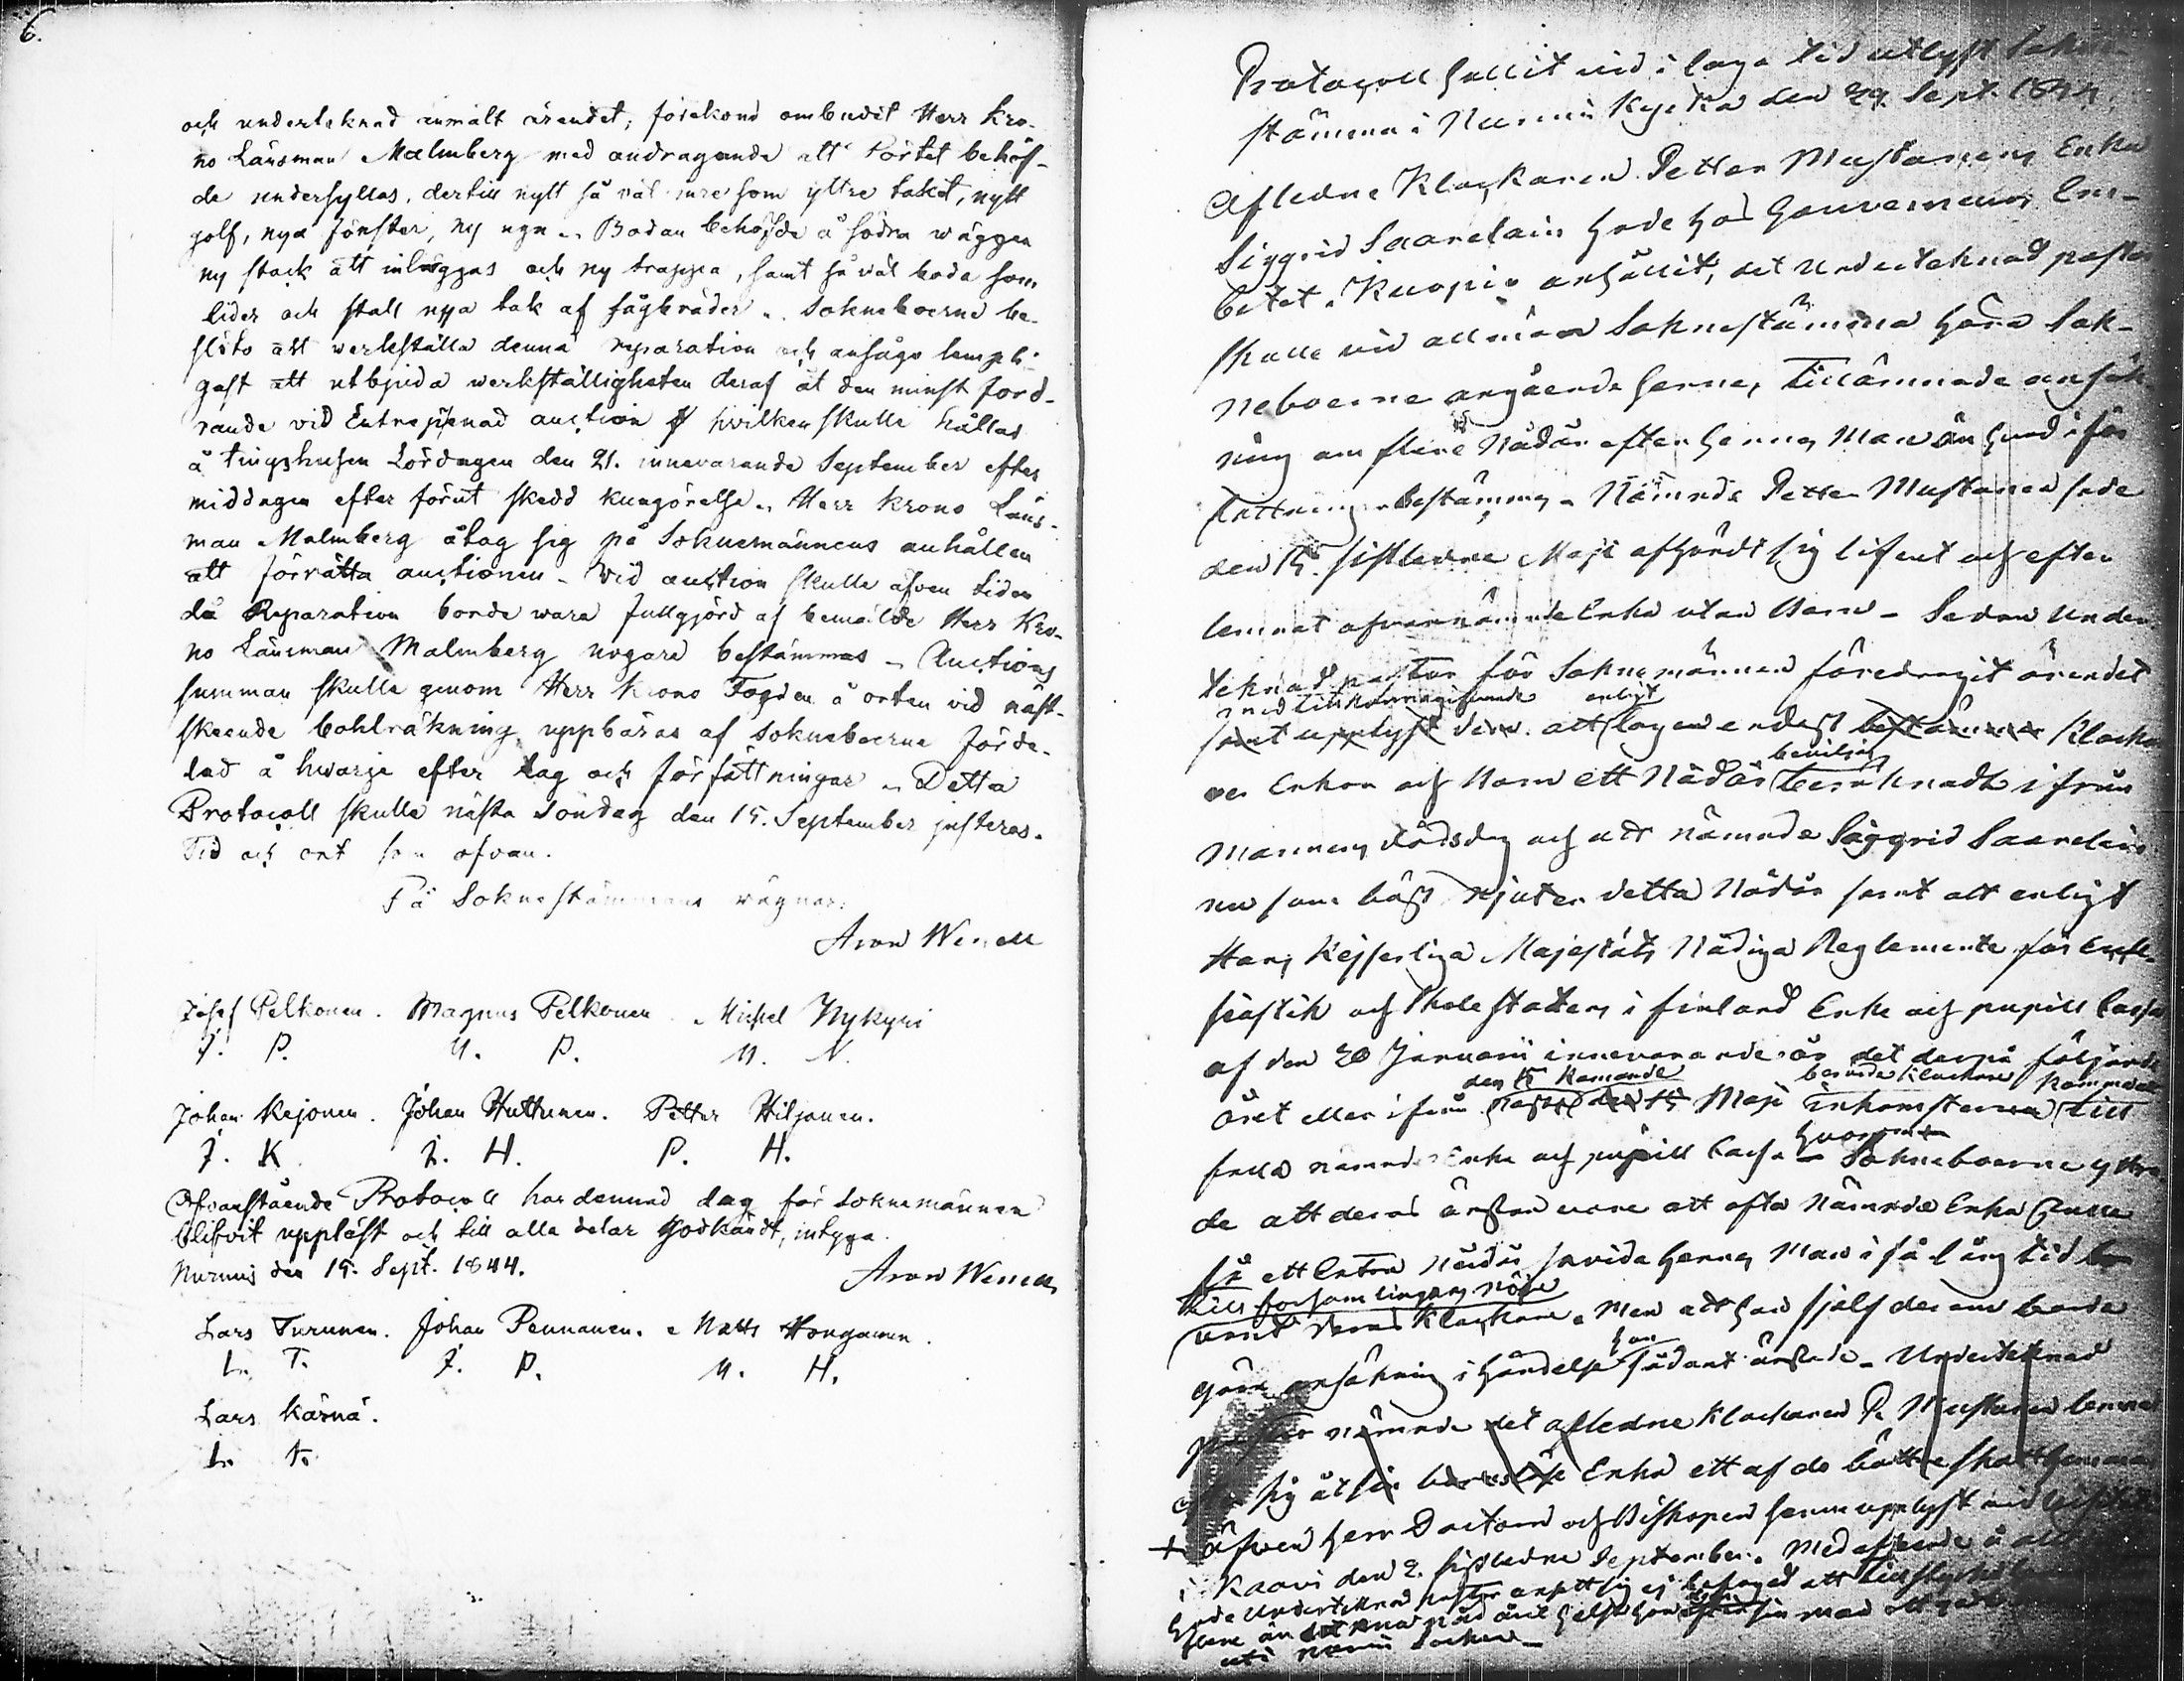 6.
och underteknad anmält ärendet, förekom ombudit Herr Kro-
no Länsman Malmberg med andragande att Pörtet behöf-
de undersyllas, dertill nytt så väl inre som yttre taket, nytt
golf, nya fönster, ny ugn. Bodan behöfde å södra wäggen
ny stock att inläggas och ny trappa, samt så väl boda som
lider och stall nya tak af sågbräder. Sokneboerne be-
slöto att werkställa denna reparation och ansågo lämpli-
gast att utbjuda werkställigheten deraf åt den minst ford-
rande vid Entreprenad auction hvilken skulle hållas
å tingshusen Lördagen den 21. innevarande September efter
middagen efter förut skedd kungörelse. Herr Krono Läns-
man Malmberg åtog sig på Soknemännens anhållen
att förrätta auctionen. Vid auction skulle äfven tiden
då Reparation borde wara fullgjord af bemälde Herr Kro-
no Länsman Malmberg nogare bestämmas. Auctions
summan skulle genom Herr Krono Fogden å orten vid näst-
skeende bohlräkning uppbäras af Sokneboerne förde-
lad å hwarje efter lag och författningar. Detta
Protocoll skulle nästa Söndag den 15. September justeras.
Tid och ort som ofvan.
På Soknestämmans wägnar:
Aron Wenell
Josef Pelkonen. Magnus Pelkonen. Michel Nykyri
J. P. M. P. M. N.
Johan Kejonen. Johan Huttunen. Petter Hiljanen.
J. K. J. H. P. H.
Ofvanstående Protocoll har dennad dag för soknemännen
blifvit uppläst och till alla delar godkändt, intyga.
Nurmis den 15. Sept. 1844.
Aron Wenell
Lars Turunen. Johan Pennanen. Matts Honganen.
L. T. J. P. M. H.
Lars Kärnä.
L. K.
Protocoll hållit vid i laga tid utlyst Sokne-
stämma i Nurmis Kyrka den 29. Sept. 1844.
Afledne Klockaren Petter Mustonens Enka
Siggrid Saarelain hade hos Gouverneurs Em-
betet i Kuopio anhållit, det Underteknad pastor
skulle vid allmän Soknestämma höra Sok-
neboerne angående hennes tillämnade ansök-
ning om flere Nådår efter hennes Man än hvad i för
fattningar bestämmes. Nämnde Petter Mustonen hade
den 15. sistledne Maji afhändt sig lifvet och efter
lemnat ofvannämnde Enka utan Barn. Sedan Under
teknad pastor för Soknemännen föredragit ärendet
med tillkännagifvande enligt
samt upplyst dem att lagen endast bestämmer Klocka
beviljas
re Enkor och Barn ett Nådår beräknadt ifrån
Mannens dödsdag och att nämnde Siggrid Saarelain
nu som bäst njuter detta Nådår samt att enligt
Hans Kejserliga Majestäts Nådiga Reglemente för Eccle-
siastik och Skole statens i Finland Enke och pupill Cassa
af den 20 Januarii innevarande år det derpå följande
den 15 kommande berörde Klockare kommande
året eller ifrån Maji inkomsterna till
falla nämnde Enke och pupill Cassa Sokneboerne yttra
de att deras önskan vore att ofta nämnde Enka skulle
få ett Extra Nådår savida hennes Man i så lång tid
till församlingens nöje
varit deras Klockare. Men att hon sjelf derom borde
hon
göra ansökning i händelse sådant önskade. Underteknad
pastor nämnde det afledne Klockaren P. Mustonen lemnat
efter sig åt sin barnlösa Enka ett af de bättre skattehemman
+ äfven Herr Doctorn och Biskopen henne upplyst vid
i Kaavi den 2. sistledne September. Med afseende å
hade Underteknad pastor ansett sig ej befogad att tillstyrka
flere än det ena nådåret helst hon sin man
uti Nurmis Socken.